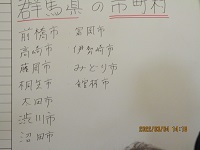 群馬県の市町村
前橋市
高崎市
藤岡市
桐生市
太田市
渋川市
沼田市
富岡市
伊勢崎市
みどり市
館林市
2022/03/04 14:18